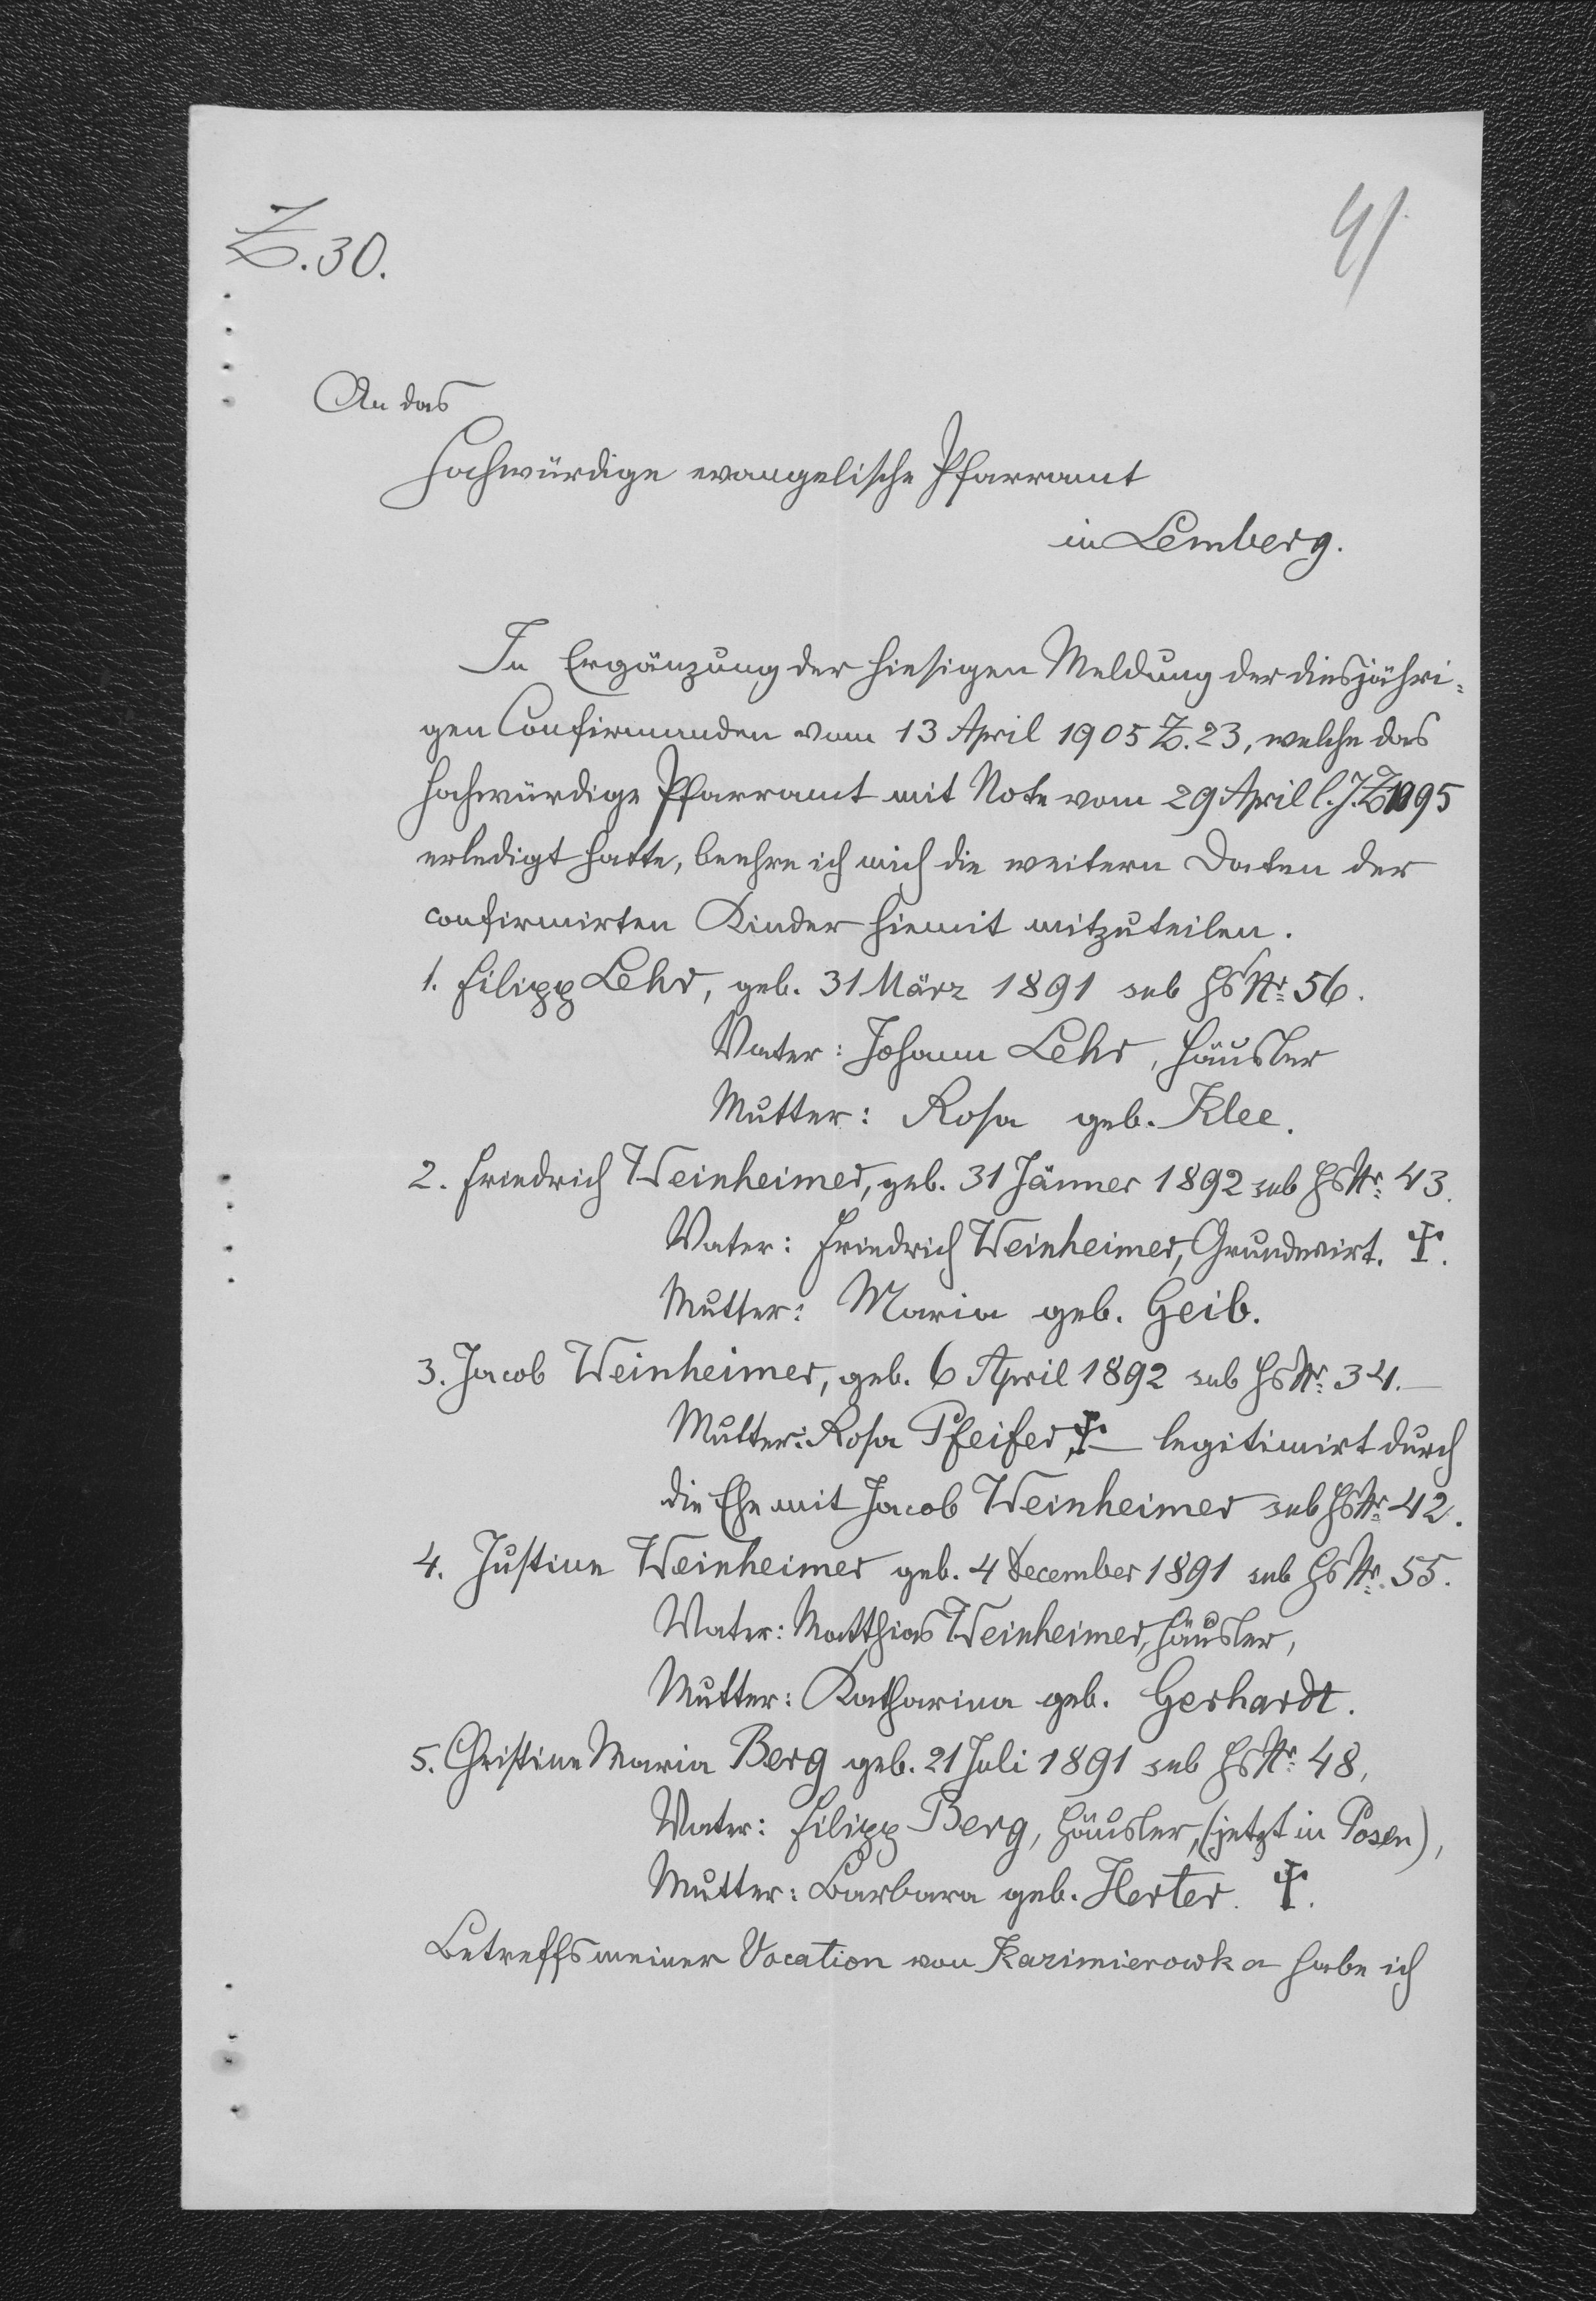 Z. 30.
41
An das
Hochwürdige evangelische Pfarramt
in Lemberg.
In Ergänzung der hiesigen Meldung der diesjähri-
gen Confirmanden vom 13 April 1905 Z. 23, welche das
hochwürdige Pfarramt mit Note vom 29 April l. J. Z 1095
erledigt hatte, beehre ich mich die weitern Daten der
confirmirten Kinder hiemit mitzuteilen.
1. Filipp Lehr, geb. 31 März 1891 sub Hs Nr: 56.
Vater: Johann Lehr, Häusler
Mutter: Rosa geb. Klee.
2. Friedrich Weinheimer, geb. 31 Jänner 1892 sub Hs Nr: 43.
Vater: Friedrich Weinheimer, Grundwirt. †.
Mutter: Maria geb. Geib.
3. Jacob Weinheimer, geb. 6 April 1892 sub Hs Nr: 34. –
Mutter: Rosa Pfeifer, † – legitimirt durch
die Ehe mit Jacob Weinheimer sub Hs Nr: 42.
4. Justine Weinheimer geb. 4 December 1891 sub Hs Nr: 55.
Vater: Matthias Weinheimer, Häusler,
Mutter: Katharina geb. Gerhardt.
5. Christine Maria Berg geb. 21 Juli 1891 sub Hs Nr: 48,
Vater: Filipp Berg, Häusler, (jetzt in Posen),
Mutter: Barbara geb. Herter. †.
Betreffs meiner Vocation von Kazimierowka habe ich